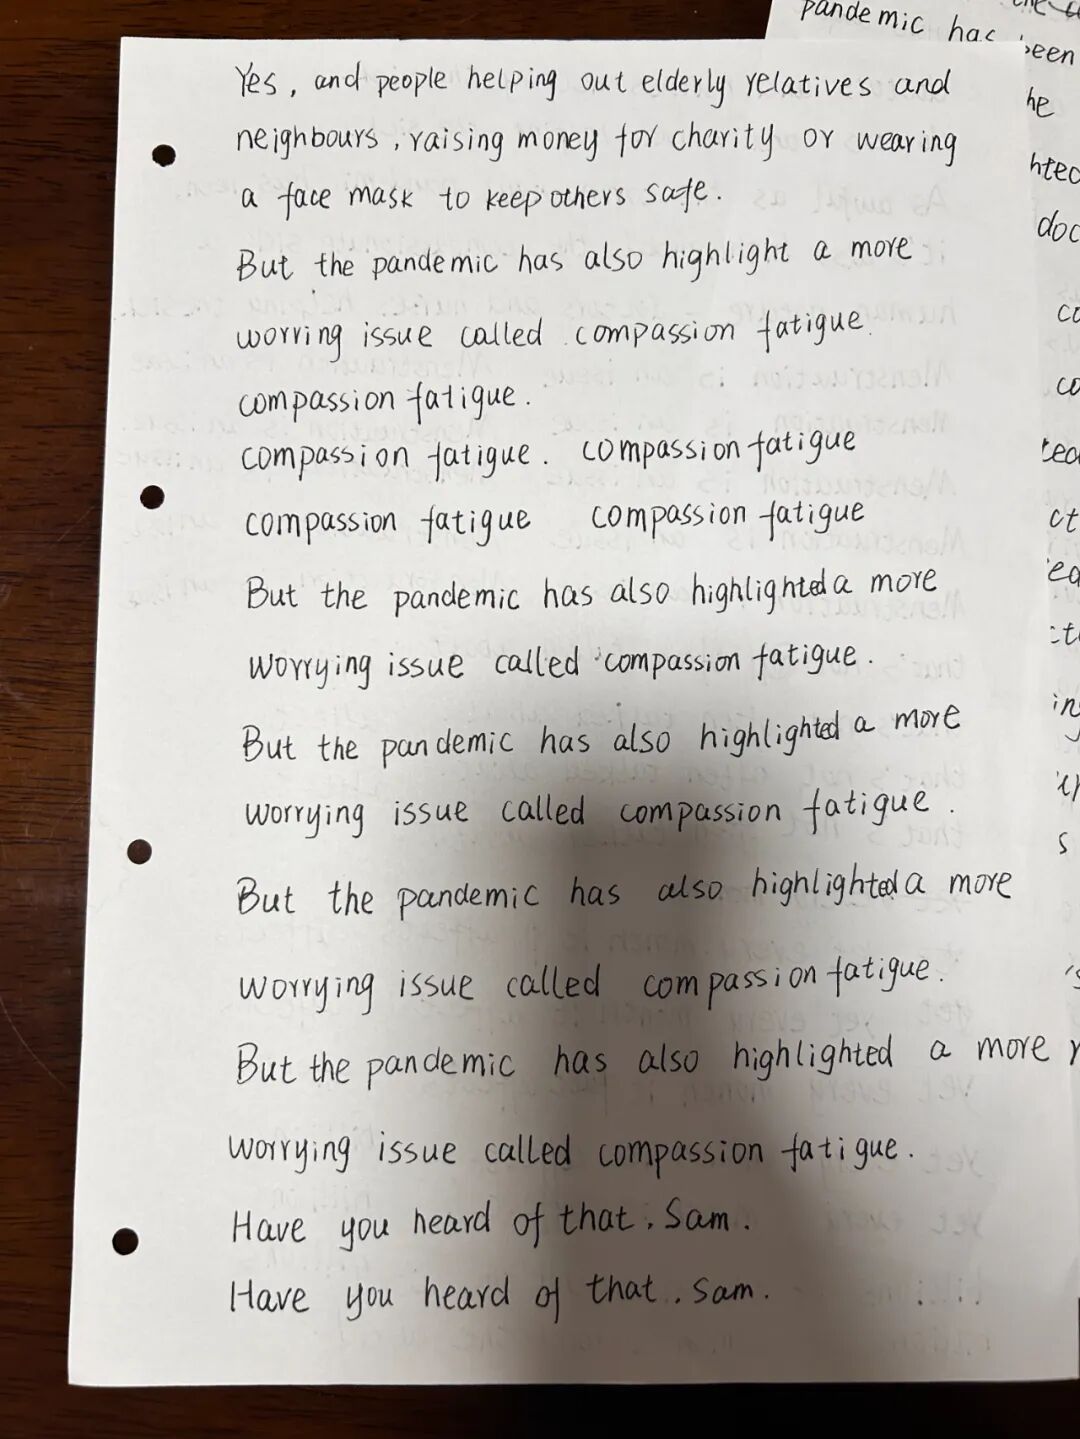 Yes, and people helping out elderly relatives and
neighbours, raising money for charity or wearing
a face mask to keep others safe.
But the pandemic has also highlight a more
worring issue called compassion fatigue.
compassion fatigue.
compassion fatigue. compassion fatigue
compassion fatigue compassion fatigue
But the pandemic has also highlighted a more
worrying issue called compassion fatigue.
But the pandemic has also highlighted a more
worrying issue called compassion fatigue.
But the pandemic has also highlighted a more
worrying issue called compassion fatigue.
But the pandemic has also highlighted a more
worrying issue called compassion fatigue.
Have you heard of that, Sam.
Have you heard of that, Sam.
pandemic has been